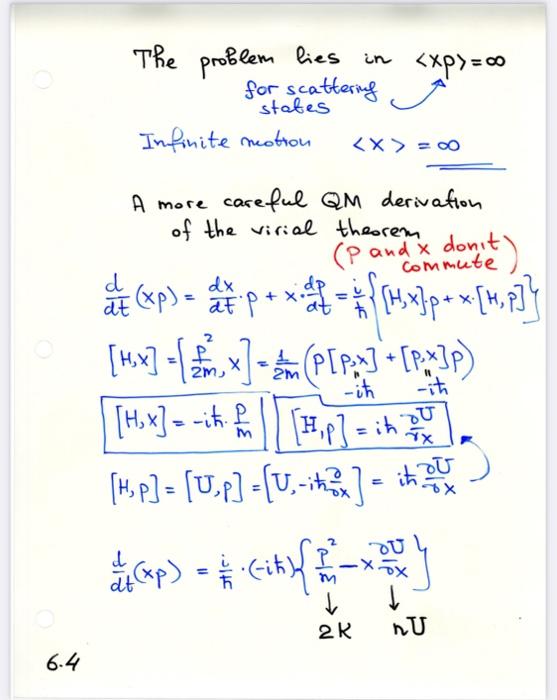 The problem lies in <xp> = ∞
for scattering
states
Infinite motion <x> = ∞
A more careful QM derivation
of the virial theorem
(p and x don't
commute)
d/dt (xp) = dx/dt · p + x · dp/dt = i/ħ {[H,x]p + x·[H,p]}
[H,x] = [p²/2m, x] = 1/2m (p[p,x] + [p,x]p)
-iħ -iħ
[H,x] = -iħ · p/m [H,p] = iħ ∂U/∂x
[H,p] = [U,p] = [U, -iħ ∂/∂x] = iħ ∂U/∂x
d/dt (xp) = i/ħ · (-iħ) {p²/m - x ∂U/∂x}
↓ ↓
2K nU
6.4